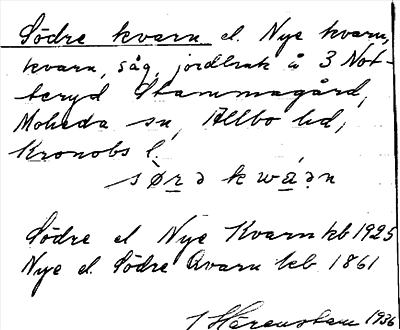 Södre kvarn el. Nye kvarn,
kvarn, såg, jordbruk å 3 Not-
teryd Stammagård,
Moheda sn, Allbo hd,
Kronobs l.
sØrə kwáən
Södre el Nye Kvarn kb 1925
Nye el. Södre Qvarn kb 1861
Härenstam 1936